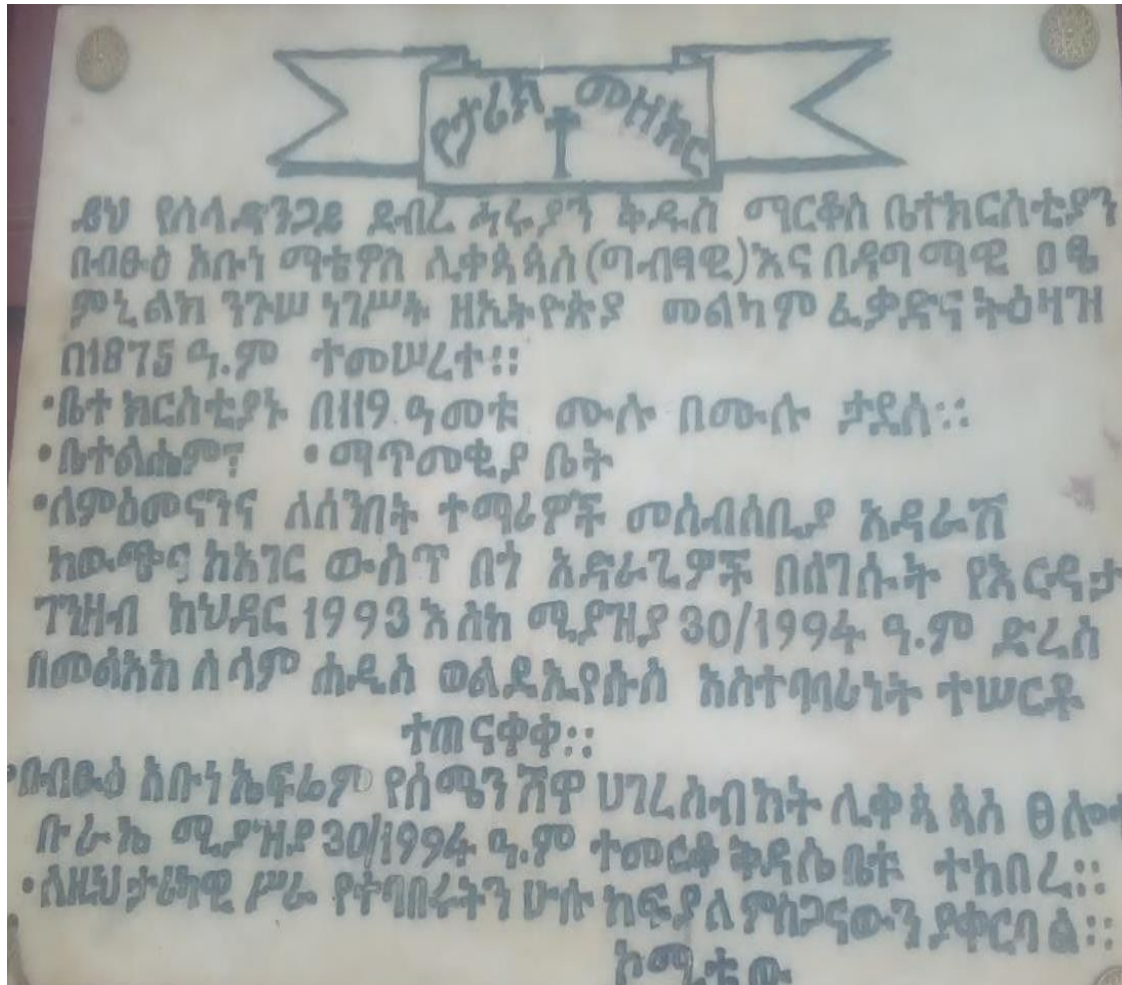 የታሪክ መዘክር
ይህ የሰላድንጋይ ደብረ ሓሩያን ቅዱስ ማርቆስ ቤተክርስቲያን
በብፁዕ አቡነ ማቴዎስ ሊቀጳጳስ(ግብፃዊ)እና በዳግማዊ ዐፄ
ምኒልክ ንጉሠ ነገሥት ዘኢትዮጵያ መልካም ፈቃድና ትዕዛዝ
በ1875 ዓ.ም ተመሠረተ፡፡
•ቤተ ክርስቲያኑ በ119 ዓመቱ ሙሉ በሙሉ ታደሰ፡፡
•ቤተልሔም፣ •ማጥመቂያ ቤት
•ለምዕመናንና ለሰንበት ተማሪዎች መሰብሰቢያ አዳራሽ
ከውጭና ከአገር ውስጥ በጎ አድራጊዎች በለገሱት የእርዳታ
ገንዘብ ከህዳር 1993 እስከ ሚያዝያ 30/1994 ዓ.ም ድረስ
በመልአከ ሰላም ሐዲስ ወልደኢየሱስ አስተባባሪነት ተሠርቶ
ተጠናቀቀ፡፡
•በብፁዕ አቡነ ኤፍሬም የሰሜን ሸዋ ሀገረ ስብከት ሊቀጳጳስ
ቡራኬ ሚያዝያ 30/1994 ዓ.ም ተመርቆ ቅዳሴ ቤቱ ተከበረ፡፡
•ለዚህ ታሪካዊ ሥራ የተባበሩትን ሁሉ ከፍ ያለ ምስጋናውን ያቀርባል፡፡
ኮሚቴው